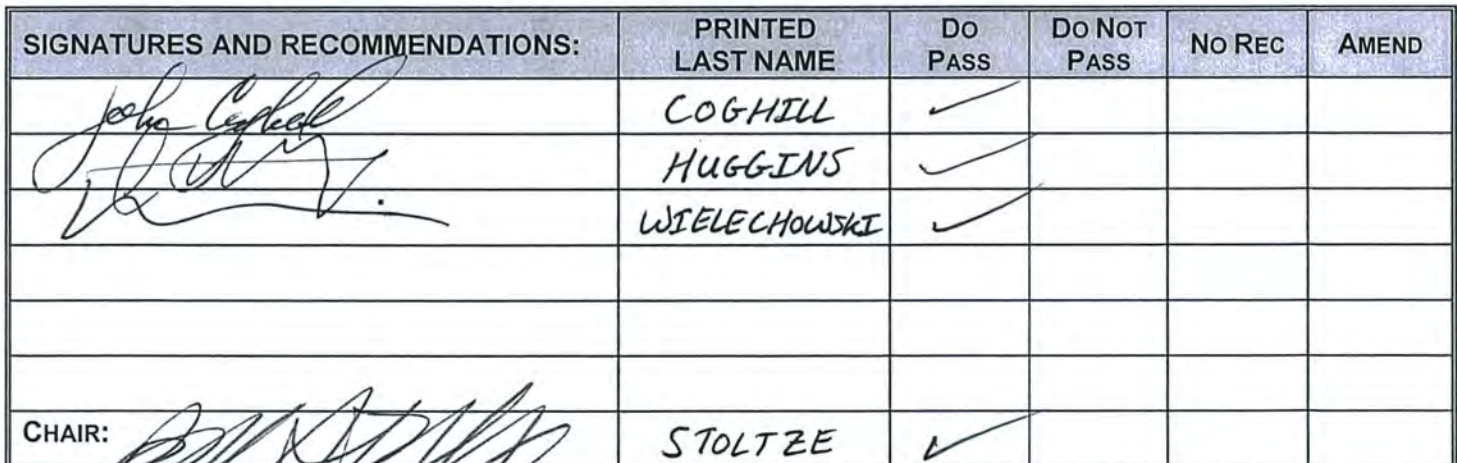 SIGNATURES AND RECOMMENDATIONS: PRINTED LAST NAME DO PASS DO NOT PASS NO REC AMEND
John Coghill COGHILL ✓
HUGGINS ✓
WIELECHOWSKI ✓
CHAIR: STOLTZE ✓